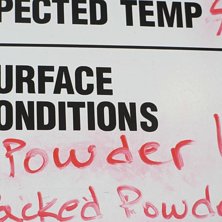 PECTED TEMP
URFACE
ONDITIONS
Powder
acked Powd